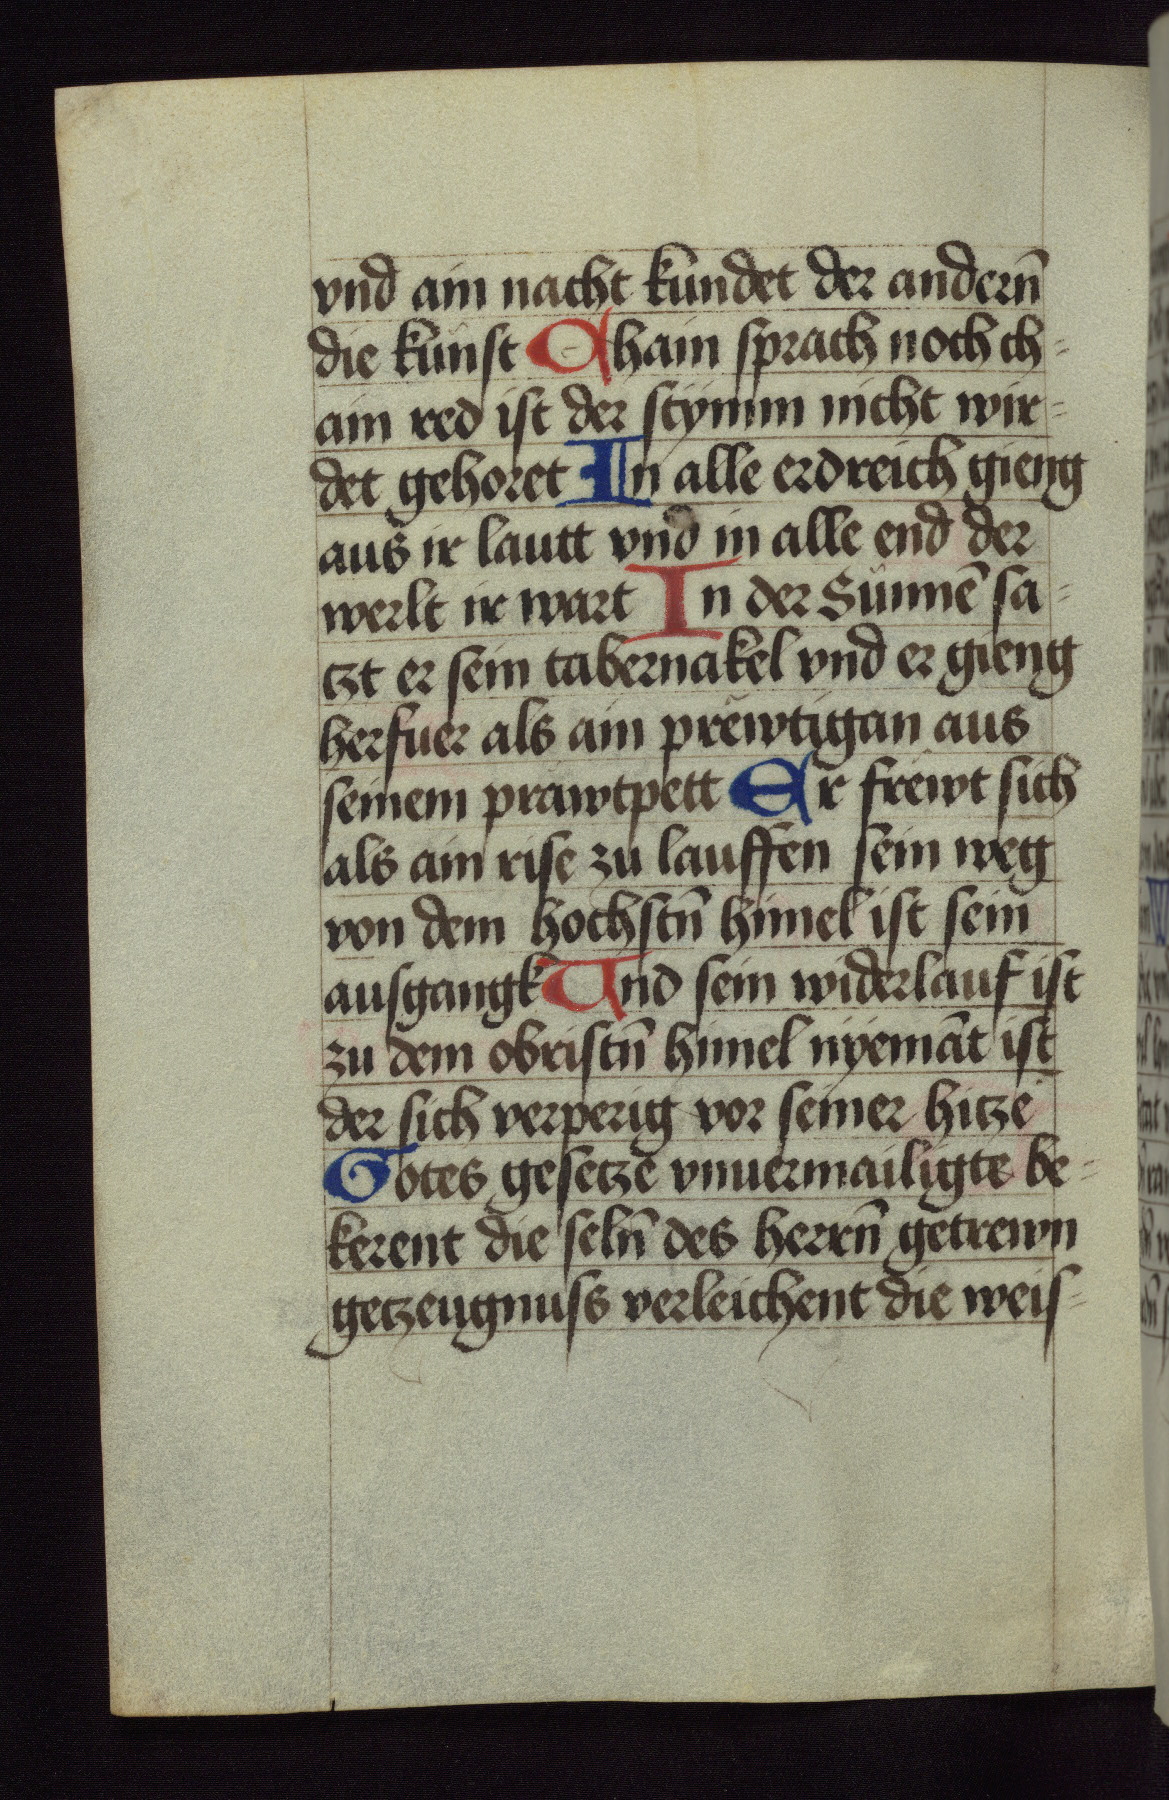 vnd ain nacht kundet der andern̄
die kunst Chain sprach noch ch-
ain red ist der stymm nicht wir-
det gehoret In alle erdreich gieng
aus ir lautt vnd in alle end der
werlt ir wart In der Sunnē sa-
tzt er sein tabernakel vnd er gieng
herfuer als ain prewtigan aus
seinem prawtpett Er frewt sich
als ain rise zu lauffen sein weg
von dem hochstn̄ himel ist sein
ausgangk Und sein widerlauf ist
zu dem obristn̄ himel nyemāt ist
der sich verperig vor seiner hitze
Gotes gesetze vnuermailigte be-
kerent die seln̄ des herrn̄ getrewn
getzeugnuss verleichent die weis-